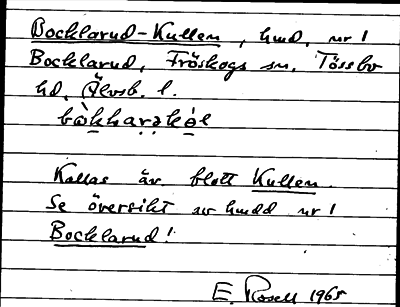 Bocklarud-Kullen, hmd. nr 1
Bocklarud, Fröskogs sn. Tössbo
hd, Älvsb. l.
Kallas äv. blott Kullen.
Se översikt av hmdd nr 1
Bocklarud!
E. Rosell 1965